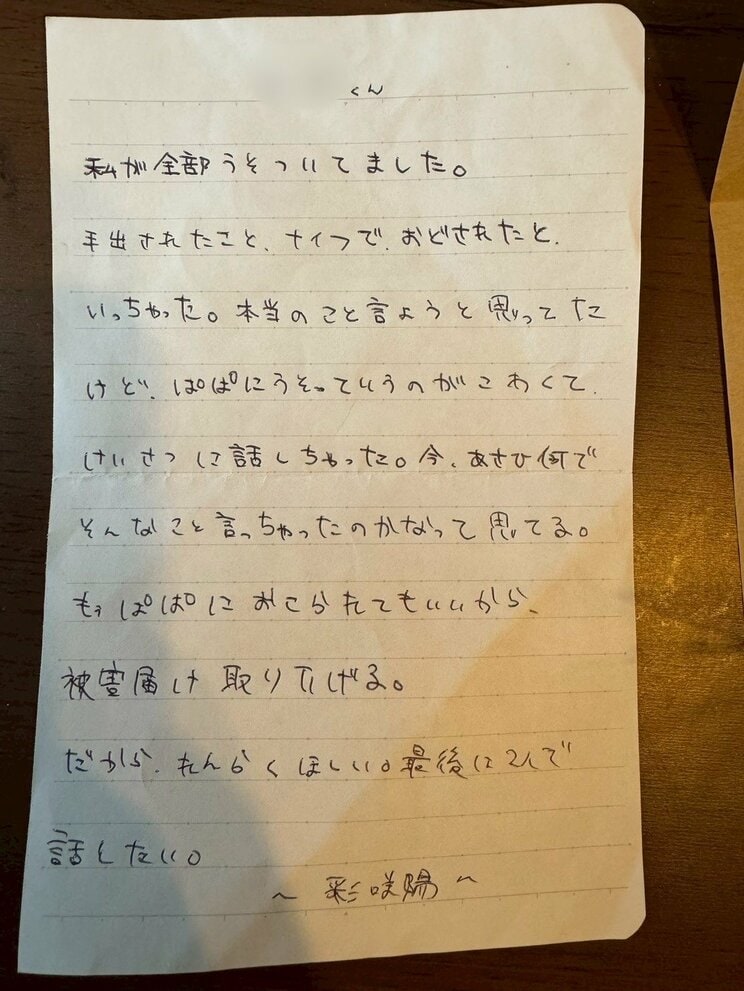 くん
私が全部うそついてました。
手出されたこと、ナイフで、おどされたと、
いっちゃった。本当のこと言ようと思ってた
けど、ぱぱにうそっていうのがこわくて、
けいさつに話しちゃった。今、あさひ何で
そんなこと言っちゃったのかなって思てる。
もぅぱぱにおこられてもいいから、
被害届け取り下げる。
だから、れんらくほしい。最後に2人で
話したい。
〜 彩咲陽 〜